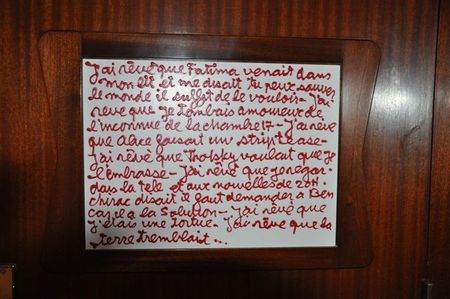 J'ai rêvé que Fatima venait dans
mon lit et me disait tu peux sauver
le monde il suffit de le vouloir - J'ai
rêvé que je tombais amoureuse de
l'inconnue de la chambre 17 - J'ai rêvé
que Alice faisait un striptease -
J'ai rêvé que Trotsky voulait que je
l'embrasse - J'ai rêvé que je regar-
dais la télé et aux nouvelles de 20H
chirac disait il faut demander à Ben
car il a la solution - J'ai rêvé que
j'étais une tortue - J'ai rêvé que la
terre tremblait ...